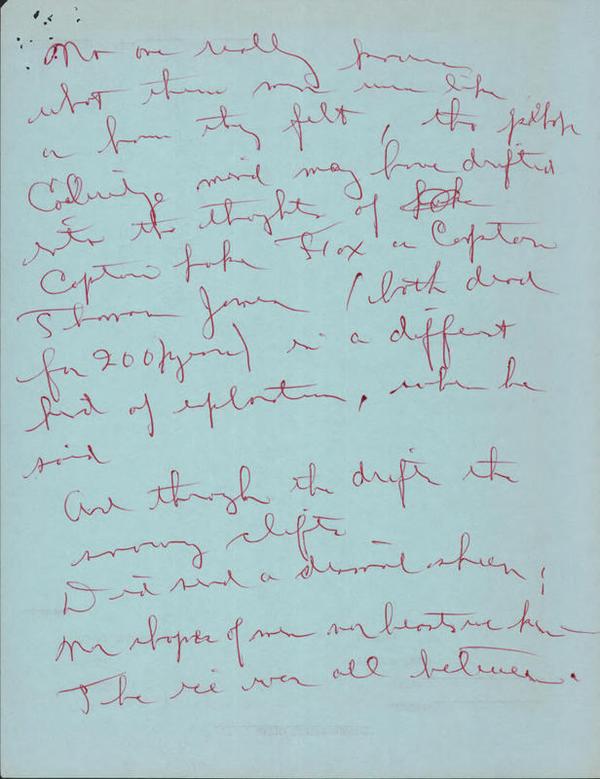 No one really knows
what these men were like
or how they felt, tho perhaps
Coleridge mind may have drifted
into the thoughts of
Captain Luke Fox or Captain
Thomas James (both dead
for 200 years) in a different
kind of exploration, when he
said
And through the drifts the
snowy clifts
Did send a dismal sheen;
Nor shapes of men nor beasts we ken—
The ice was all between.